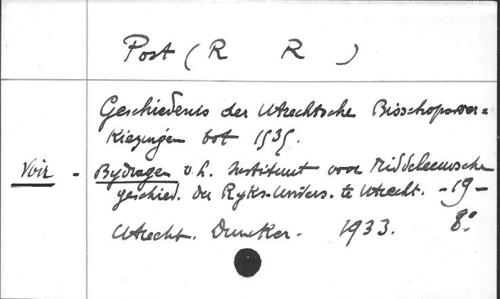 Post (R R )
Geschiedenis der Utrechtsche Bisschopsver=
Kiezingen tot 1535.
Voir - Bydragen v.h. Instituut voor Middeleeuwsche
geschied. der Ryks-Univers. te Utrecht. -19-
Utrecht. Duncker. 1933. 8°